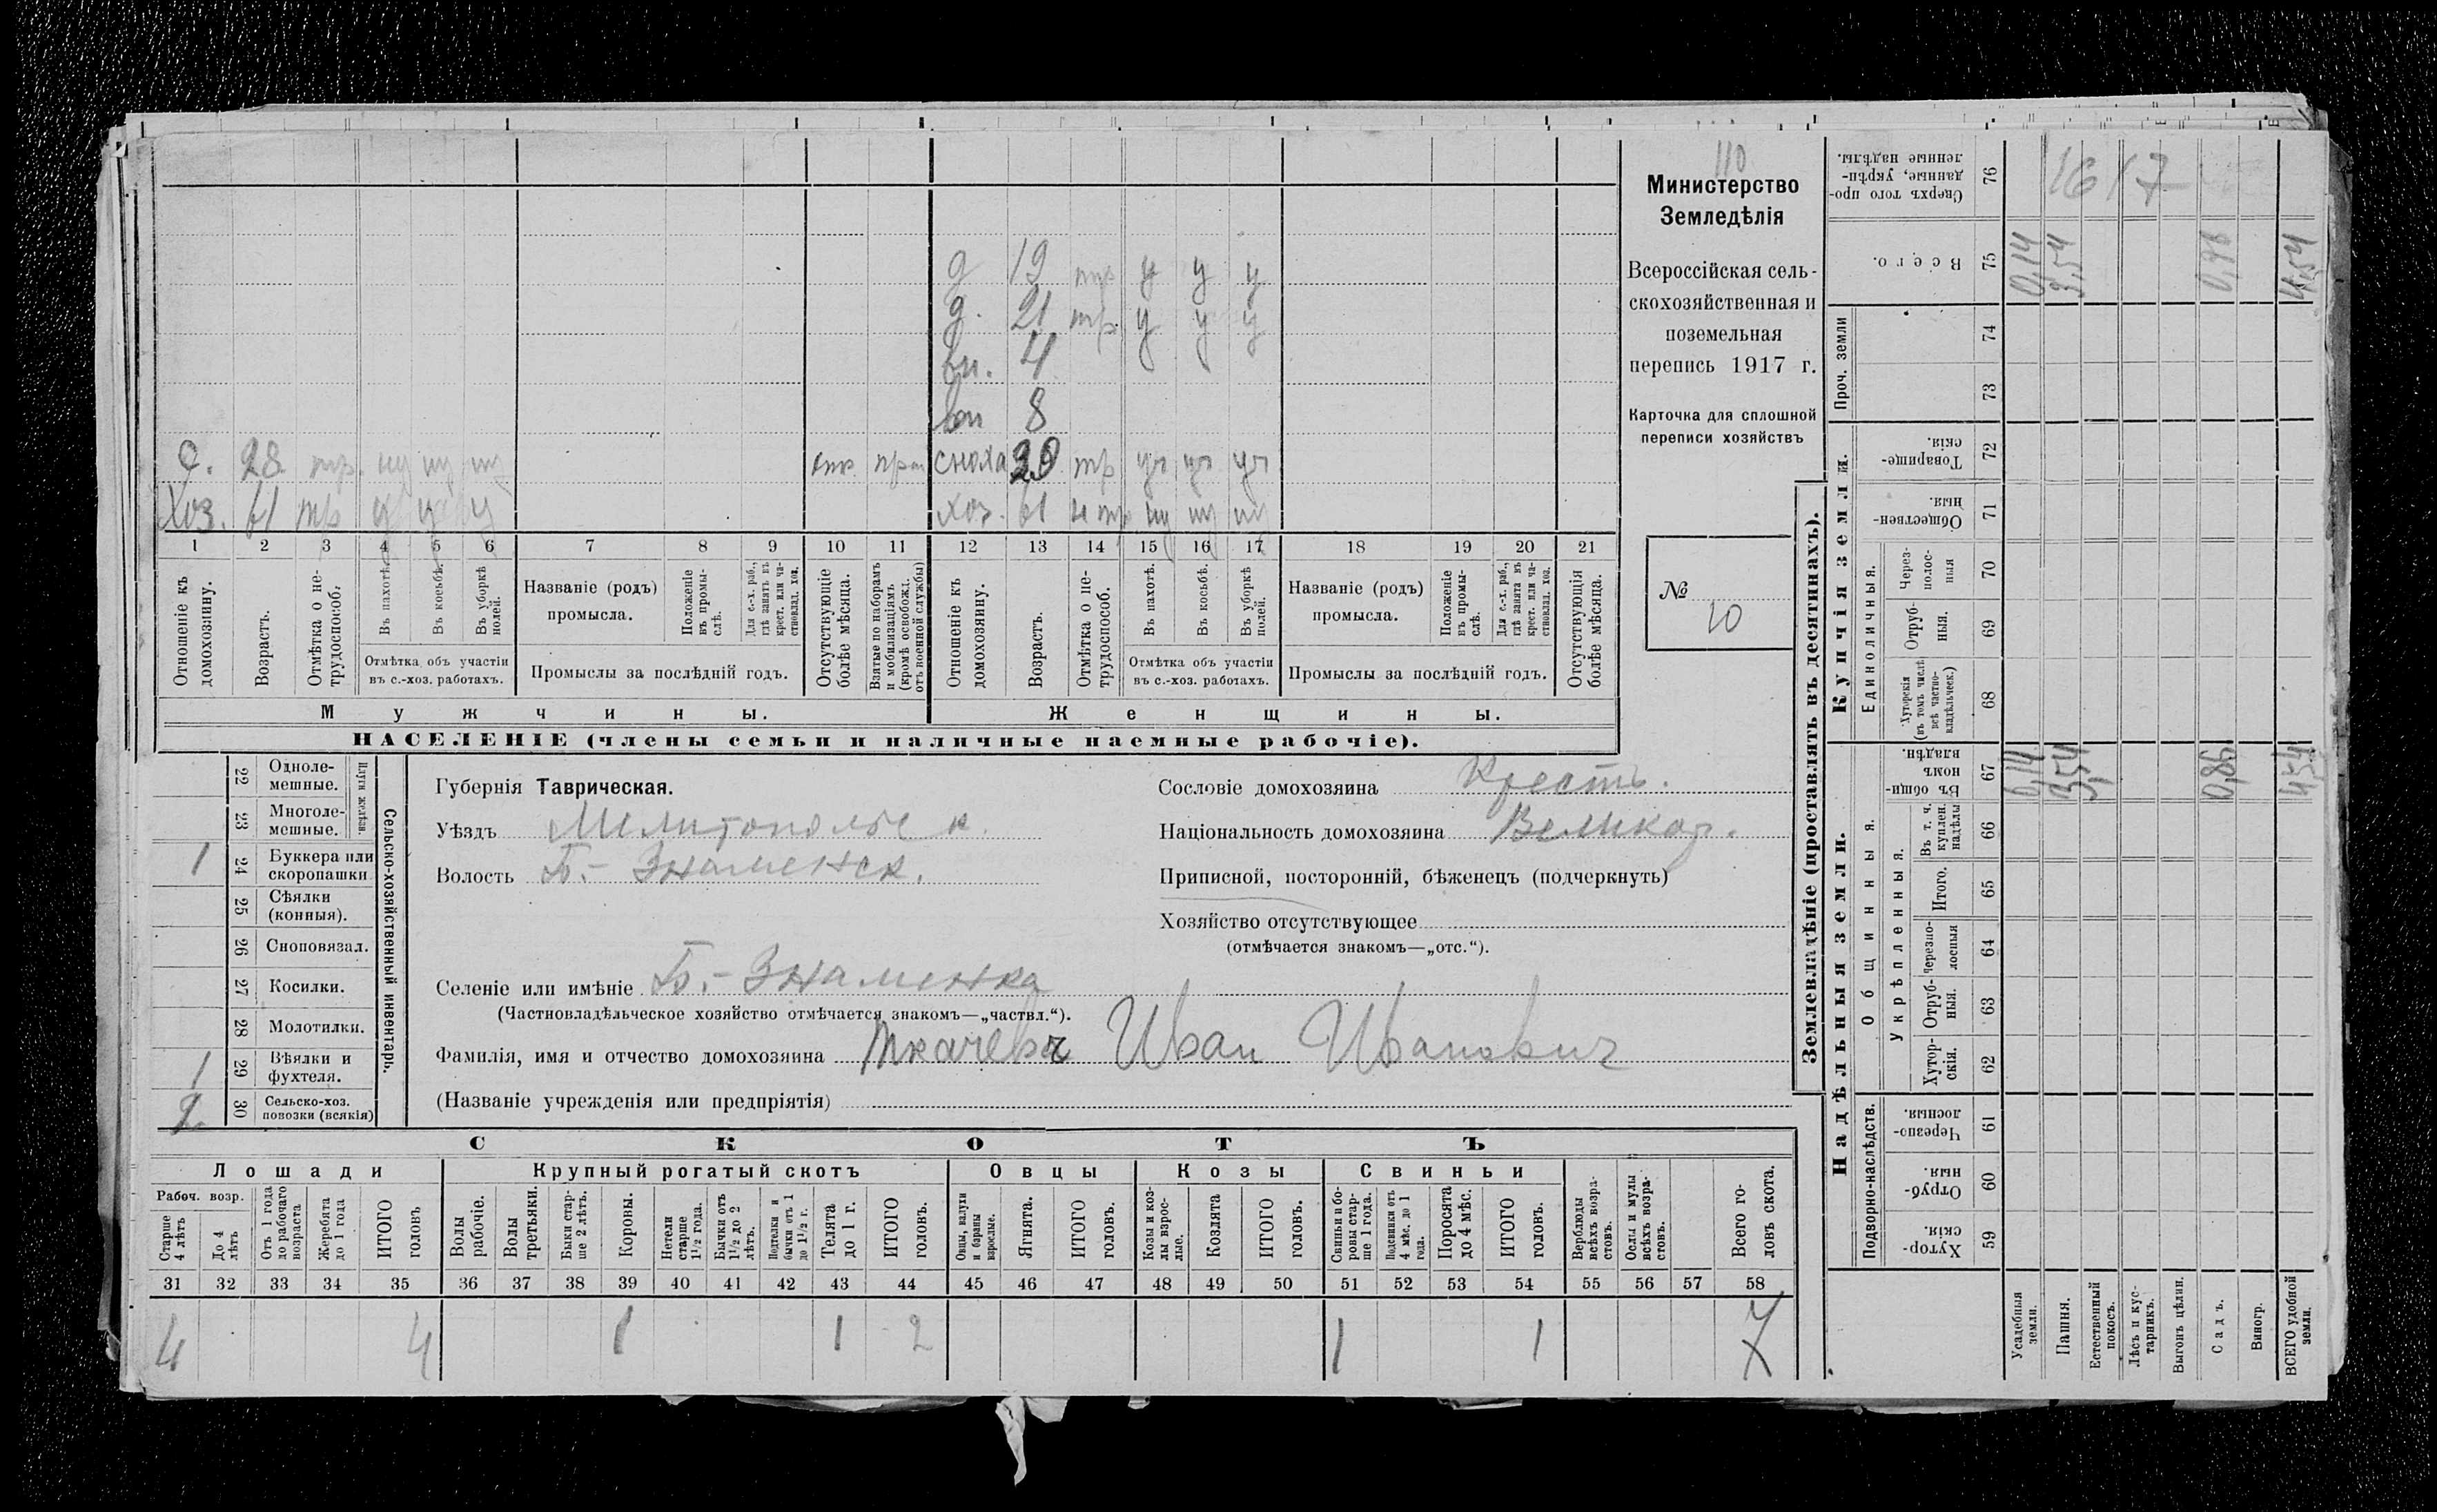 110
Министерство
Земледѣлія
Всероссійская сель-
скохозяйственная и
поземельная
перепись 1917 г.
Карточка для сплошной
переписи хозяйствъ
№ 10
д 19 тр у у у
д. 21 тр у у у
вн. 4
вн 8
с. 28 тр. отс. сноха 29 тр
Хоз. 61 тр у у у хоз. 61
1 2 3 4 5 6 7 8 9 10 11 12 13 14 15 16 17 18 19 20 21
Отношеніе къ домохозяину.
Возрастъ.
Отмѣтка о не-трудоспособ.
Въ пахотѣ.
Въ косьбѣ.
Въ уборкѣ полей.
Отмѣтка объ участіи
въ с.-хоз. работахъ.
Названіе (родъ)
промысла.
Положеніе въ промы-слѣ.
Для с.-х. раб., гдѣ занятъ въ крест. или ча-стновлад. хоз.
Промыслы за послѣдній годъ.
Отсутствующіе болѣе мѣсяца.
Взятые по наборамъ и мобилизаціямъ (кромѣ освобожд. отъ военной службы)
Отношеніе къ домохозяину.
Возрастъ.
Отмѣтка о не-трудоспособ.
Въ пахотѣ.
Въ косьбѣ.
Въ уборкѣ полей.
Отмѣтка объ участіи
въ с.-хоз. работахъ.
Названіе (родъ)
промысла.
Положеніе въ промы-слѣ.
Для с.-х. раб., гдѣ занята въ крест. или ча-стновлад. хоз.
Промыслы за послѣдній годъ.
Отсутствующія болѣе мѣсяца.
Мужчины. Женщины.
НАСЕЛЕНІЕ (члены семьи и наличные наемные рабочіе).
Сельско-хозяйственный инвентарь.
Плуги желѣзн.
22 Одноле-мешные.
23 Многоле-мешные.
1 24 Буккера или скоропашки
25 Сѣялки (конныя).
26 Сноповязал.
27 Косилки.
28 Молотилки.
1 29 Вѣялки и фухтеля.
2 30 Сельско-хоз. повозки (всякія)
Губернія Таврическая.
Уѣздъ Мелитопольск.
Волость Б.-Знаменск.
Селеніе или имѣніе Б.-Знаменка
(Частновладѣльческое хозяйство отмѣчается знакомъ—„частвл.“).
Фамилія, имя и отчество домохозяина Ткачевъ Иван Иванович
(Названіе учрежденія или предпріятія)
Сословіе домохозяина Крестъ.
Національность домохозяина Великор.
Приписной, посторонній, бѣженецъ (подчеркнуть)
Хозяйство отсутствующее
(отмѣчается знакомъ—„отс.“).
СКОТЪ
Лошади Крупный рогатый скотъ Овцы Козы Свиньи
Рабоч. возр.
Старше 4 лѣтъ
До 4 лѣтъ
Отъ 1 года до рабочаго возраста
Жеребята до 1 года
ИТОГО головъ
Волы рабочіе.
Волы третьяки.
Быки стар-ше 2 лѣтъ.
Коровы.
Нетели старше 1½ года.
Бычки отъ 1½ до 2 лѣтъ.
Подтелки и бычки отъ 1 до 1½ г.
Телята до 1 г.
ИТОГО головъ.
Овцы, валухи и бараны взрослые.
Ягнята.
ИТОГО головъ.
Козы и коз-лы взрос-лые.
Козлята
ИТОГО головъ.
Свиньи и бо-ровы стар-ше 1 года.
Подсвинки отъ 4 мѣс. до 1 года.
Поросята до 4 мѣс.
ИТОГО головъ.
Верблюды всѣхъ возра-стовъ.
Ослы и мулы всѣхъ возра-стовъ.
Всего го-ловъ скота.
31 32 33 34 35 36 37 38 39 40 41 42 43 44 45 46 47 48 49 50 51 52 53 54 55 56 57 58
4 4 1 1 2 1 1 7
Землевладѣніе (проставлять въ десятинахъ).
Надѣльныя земли.
Купчія земли.
Проч. земли
Подворно-наслѣдств.
Общинныя.
Укрѣпленныя.
Единоличныя.
Сверхъ того про-данные, укрѣп-ленные надѣлы. 76 1617
Всего. 75 0,14 3,54 4,54
74
73
Товарище-скія. 72
Обществен-ныя. 71
Через-полос-ныя 70
Отруб-ныя. 69
Хуторскія (въ томъ числѣ всѣ частно-владѣльческ.) 68
Въ общин-номъ владѣн. 67 0,14 3,54 0,86 4,54
Въ т. ч. куплен. надѣлы 66
Итого. 65
Черезпо-лосныя 64
Отруб-ныя. 63
Хутор-скія. 62
Черезпо-лосныя. 61
Отруб-ныя. 60
Хутор-скія. 59
Усадебныя земли.
Пашня.
Естественный покосъ.
Лѣсъ и кус-тарникъ.
Выгонъ цѣлин.
Садъ.
Виногр.
ВСЕГО удобной земли.